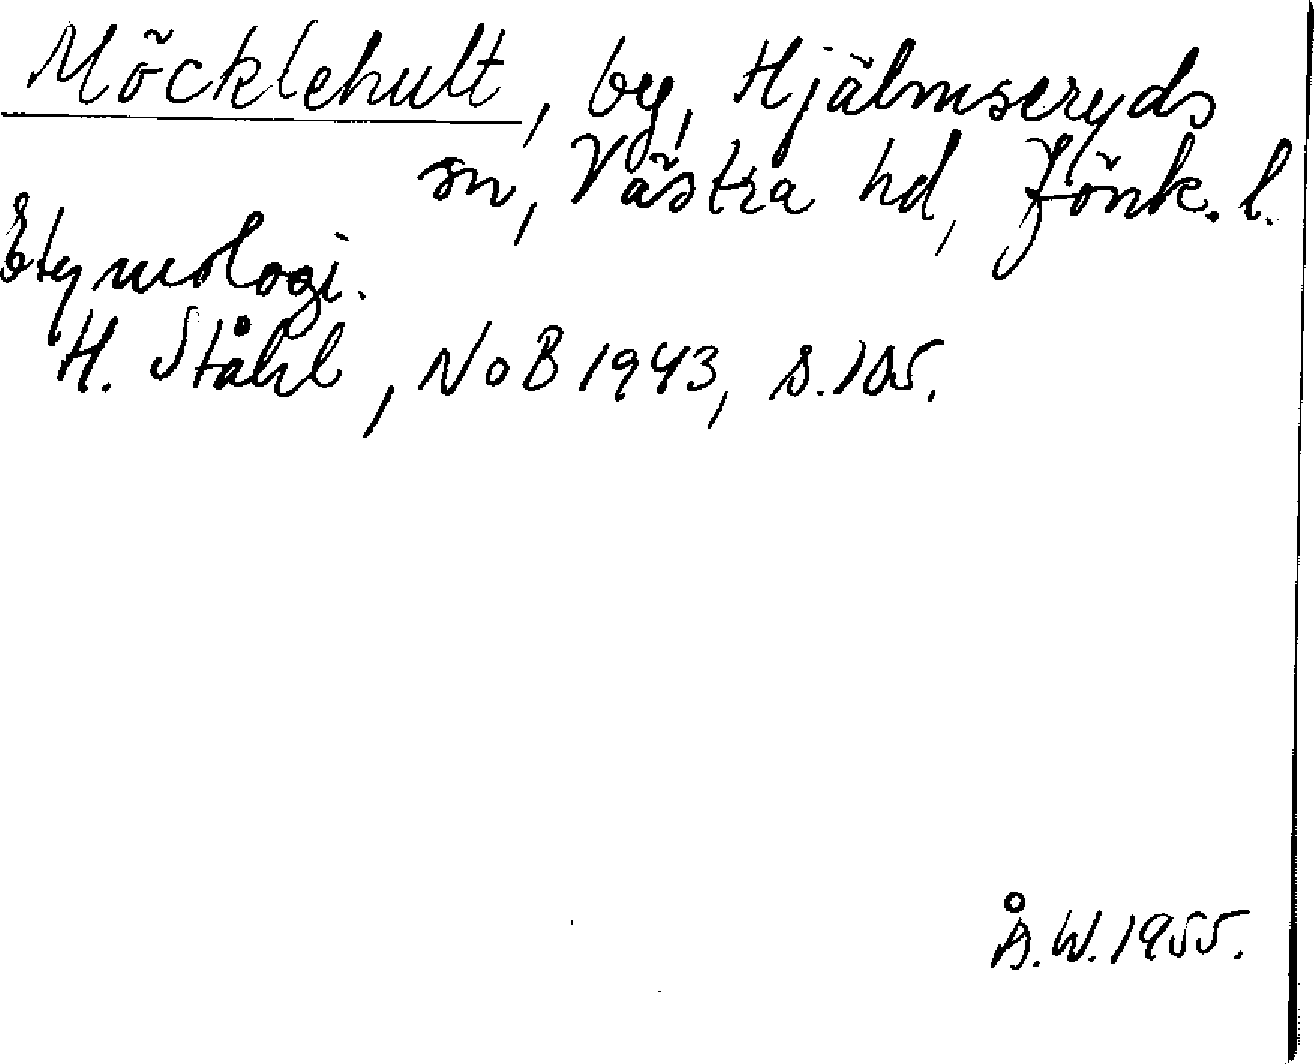 Möcklehult, by, Hjälmseryds
sn, Västra hd, Jönk. l.
Etymologi.
H. Ståhl, NoB 1943, s. 105.
Å.W. 1955.